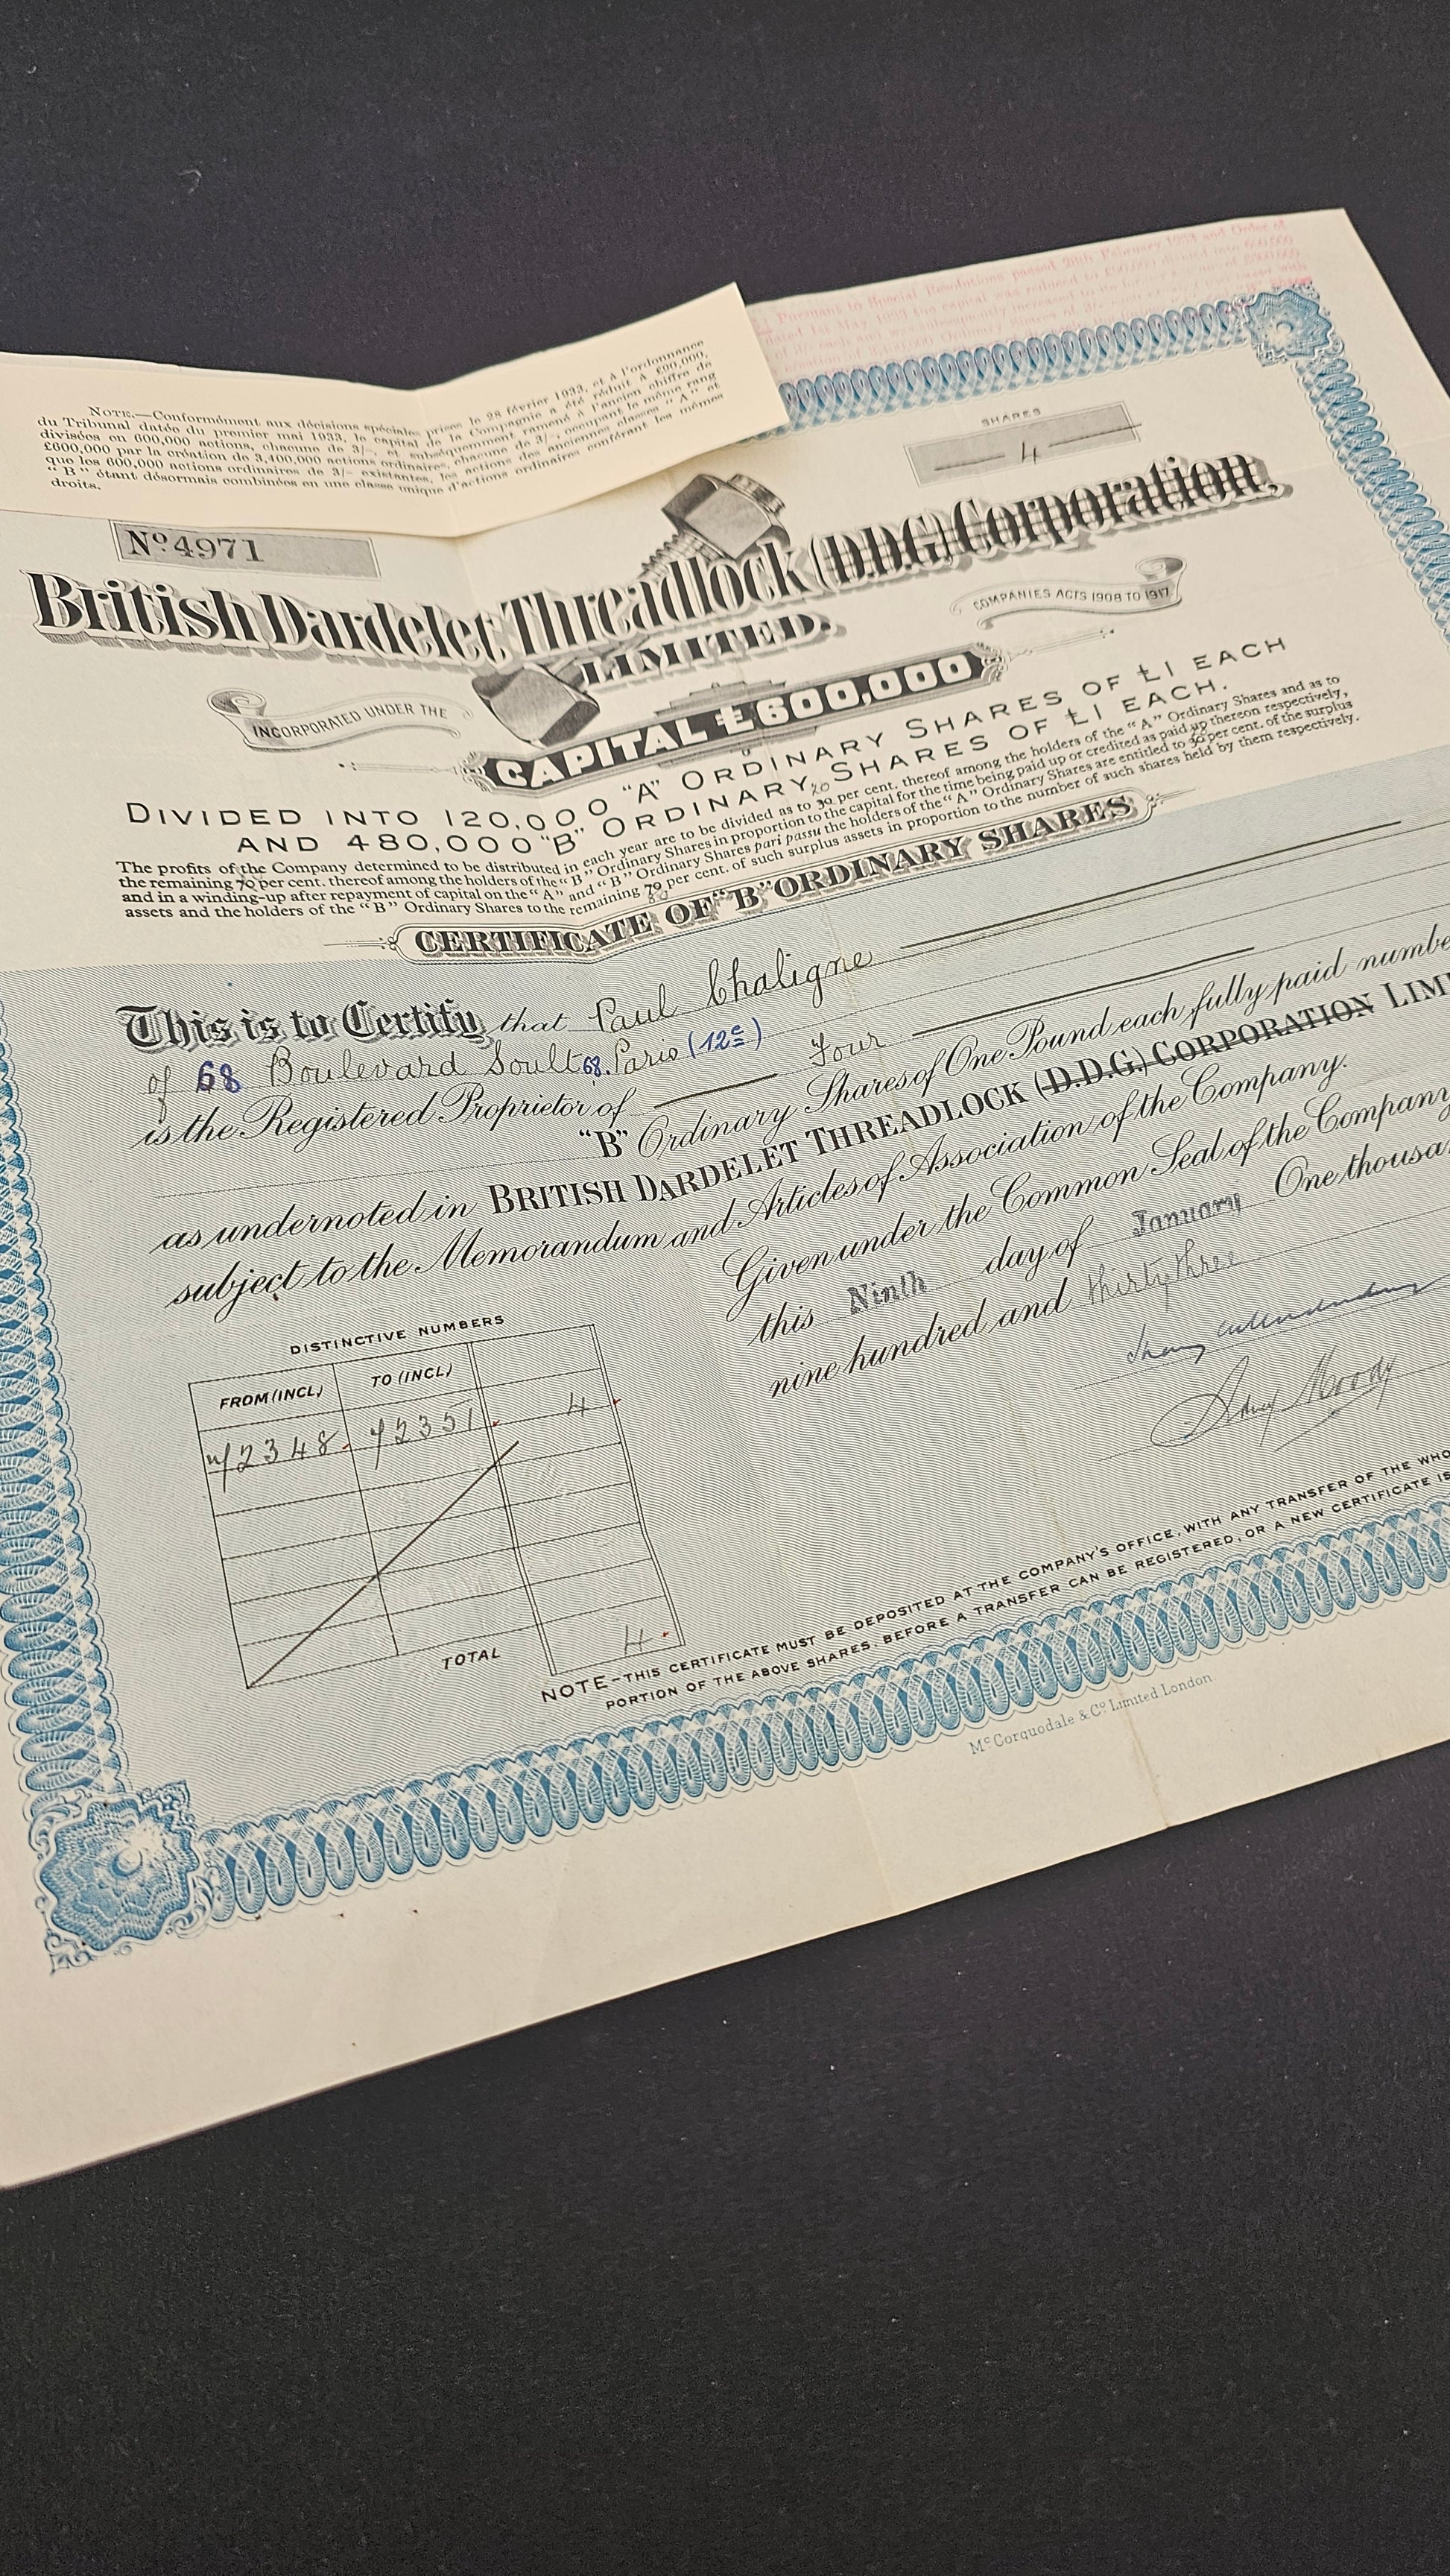 Pursuant to Special Resolutions passed 28th February 1933 and Order of
dated 1st May, 1933 the capital was reduced to £90,000 divided into 600,000
of 3/- each and was subsequently increased to its former
NOTE.—Conformément aux décisions spéciales prises le 28 février 1933, et à l'ordonnance
du Tribunal datée du premier mai 1933, le capital de la Compagnie a été réduit à £90,000,
divisées en 600,000 actions, chacune de 3/-, et subséquemment ramené à l'ancien chiffre de
£600,000 par la création de 3,400,000 actions ordinaires, chacune de 3/-, occupant le même rang
que les 600,000 actions ordinaires de 3/- existantes, les actions des anciennes classes "A" et
"B" étant désormais combinées en une classe unique d'actions ordinaires conférant les mêmes
droits.
SHARES
4
Nº 4971
British Dardelet Threadlock (D.D.G.) Corporation,
LIMITED.
INCORPORATED UNDER THE
COMPANIES ACTS 1908 TO 1917
CAPITAL £600,000
DIVIDED INTO 120,000 "A" ORDINARY SHARES OF £1 EACH
AND 480,000 "B" ORDINARY SHARES OF £1 EACH.
20
The profits of the Company determined to be distributed in each year are to be divided as to 30 per cent. thereof among the holders of the "A" Ordinary Shares and as to
the remaining 70 per cent. thereof among the holders of the "B" Ordinary Shares in proportion to the capital for the time being paid up or credited as paid up thereon respectively,
and in a winding-up after repayment of capital on the "A" and "B" Ordinary Shares pari passu the holders of the "A" Ordinary Shares are entitled to 30 per cent. of the surplus
assets and the holders of the "B" Ordinary Shares to the remaining 70 per cent. of such surplus assets in proportion to the number of such shares held by them respectively.
80
CERTIFICATE OF "B" ORDINARY SHARES
This is to Certify that Paul Chaligne
of 68 Boulevard Soult 68. Paris (12e)
is the Registered Proprietor of Four
"B" Ordinary Shares of One Pound each fully paid numbe
as undernoted in BRITISH DARDELET THREADLOCK (D.D.G.) CORPORATION LIM
subject to the Memorandum and Articles of Association of the Company.
Given under the Common Seal of the Company
this Ninth day of January One thousa
nine hundred and thirty three
Sidney Moody
DISTINCTIVE NUMBERS
FROM (INCL) TO (INCL)
42348 42351 4
TOTAL 4
NOTE-THIS CERTIFICATE MUST BE DEPOSITED AT THE COMPANY'S OFFICE, WITH ANY TRANSFER OF THE WHO
PORTION OF THE ABOVE SHARES, BEFORE A TRANSFER CAN BE REGISTERED, OR A NEW CERTIFICATE IS
McCorquodale & Co Limited London